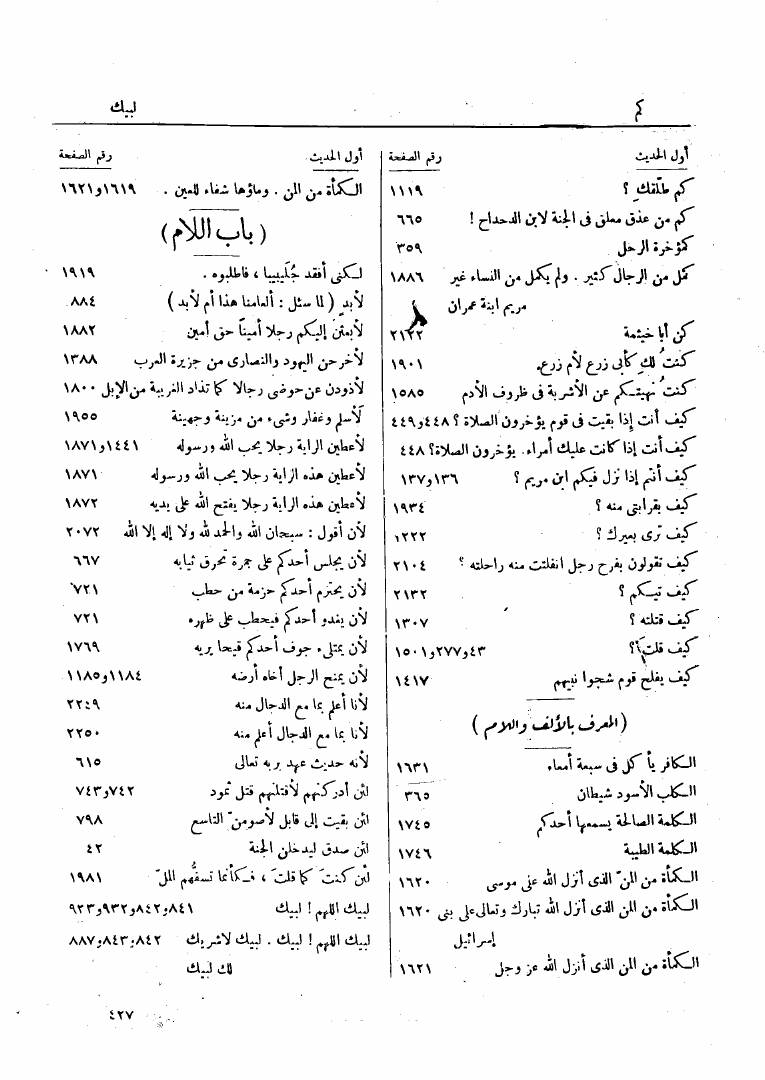 كم
لبيك
أول الحديث رقم الصفحة
كم طلّقكِ ؟ ١١١٩
كم من عذق معلق فى الجنة لابن الدحداح ! ٦٦٥
كمؤخرة الرحل ٣٥٩
كمل من الرجال كثير . ولم يكمل من النساء غير ١٨٨٦
مريم ابنة عمران
كن أبا خيثمة ٢١٢٢
كنتُ لكِ كأبى زرع لأم زرع. ١٩٠١
كنتُ نهيتـكم عن الأشربة فى ظروف الأدم ١٥٨٥
كيف أنت إذا بقيت فى قوم يؤخرون الصلاة ؟ ٤٤٨و٤٤٩
كيف أنت إذا كانت عليك أمراء. يؤخرون الصلاة؟ ٤٤٨
كيف أنتم إذا نزل فيكم ابن مريم ؟ ١٣٦و١٣٧
كيف بقرابتى منه ؟ ١٩٣٤
كيف ترى بعيرك ؟ ١٢٢٢
كيف تقولون بفرح رجل انفلتت منه راحلته ؟ ٢١٠٤
كيف تيـكم ؟ ٢١٣٢
كيف قتلته ؟ ١٣٠٧
كيف قلت؟ ٤٣و٢٧٧و١٥٠١
كيف يفلح قوم شجوا نبيهم ١٤١٧
( المعرف بالألف واللام )
الـكافر يأكل فى سبعة أمعاء ١٦٣١
الـكلب الأسود شيطان ٣٦٥
الـكلمة الصالحة يسمعها أحدكم ١٧٤٥
الـكلمة الطيبة ١٧٤٦
الـكمأة من المنّ الذى أنزل الله على موسى ١٦٢٠
الـكمأة من المن الذى أنزل الله تبارك وتعالى على بنى ١٦٢٠
إسرائيل
الـكمأة من المن الذى أنزل الله عز وجل ١٦٢١
أول الحديث رقم الصفحة
الـكمأة من المن . وماؤها شفاء للعين . ١٦١٩و١٦٢١
( باب اللام )
لـكنى أفقد جُلَيبيبا ، فاطلبوه . ١٩١٩
لأبدٍ ( لما سئل : ألعامنا هذا أم لأبد ) ٨٨٤
لأبعثن إليكم رجلا أميناً حق أمين ١٨٨٢
لأخرجن اليهود والنصارى من جزيرة العرب ١٣٨٨
لأذودن عن حوضى رجالا كما تذاد الغريبة من الإبل ١٨٠٠
لأسلم وغفار وشىء من مزينة وجهينة ١٩٥٥
لأعطين الراية رجلا يحب الله ورسوله ١٤٤١و١٨٧١
لأعطين هذه الراية رجلا يحب الله ورسوله ١٨٧١
لأعطين هذه الراية رجلا يفتح الله على يديه ١٨٧٢
لأن أقول : سبحان الله والحمد لله ولا إله إلا الله ٢٠٧٢
لأن يجلس أحدكم على جمرة تحرق ثيابه ٦٦٧
لأن يحتزم أحدكم حزمة من حطب ٧٢١
لأن يغدو أحدكم فيحطب على ظهره ٧٢١
لأن يمتلىء جوف أحدكم قيحا يريه ١٧٦٩
لأن يمنح الرجل أخاه أرضه ١١٨٤و١١٨٥
لأنا أعلم بما مع الدجال منه ٢٢٤٩
لأنا بما مع الدجال أعلم منه ٢٢٥٠
لأنه حديث عهد بربه تعالى ٦١٥
لئن أدركتهم لأقتلنهم قتل ثمود ٧٤٢و٧٤٣
لئن بقيت إلى قابل لأصومنّ التاسع ٧٩٨
لئن صدق ليدخلن الجنة ٤٢
لئن كنت كما قلتَ ، فـكأنما تسفُّهم الملّ ١٩٨١
لبيك اللهم ! لبيك ٨٤١و٨٤٢و٩٣٢و٩٢٣
لبيك اللهم ! لبيك . لبيك لاشريك ٨٤٢و٨٤٣و٨٨٧
لك لبيك
٤٢٧